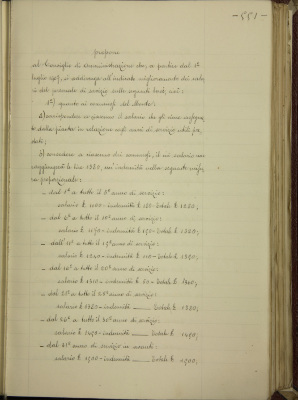 -551-
propone
al Consiglio di amministrazione che, a partire dal 1º
luglio 1919, si addivenga all'indicato miglioramento dei sala-
ri del personale di servizio sulle seguenti basi, cioè:
1º) quanto ai commessi del Monte:
a) corrispondere a ciascuno il salario che gli viene assegna-
to dalla pianta in relazione agli anni di servizio utili pre-
stati;
b) concedere a ciascuno dei commessi, il cui salario non
raggiunge le lire 1320, un'indennità nella seguente misu-
ra proporzionale:
- dal 1º a tutto il 5º anno di servizio:
salario £ 1100 - indennità £ 120 - totale £ 1220;
- dal 6º a tutto il 10º anno di servizio:
salario £ 1170 - indennità £ 150 - totale £ 1320;
- dall'11º a tutto il 15º anno di servizio:
salario £ 1240 - indennità £ 110 - totale £ 1350;
- dal 16º a tutto il 20º anno di servizio:
salario £ 1310 - indennità £ 50 - totale £ 1360;
- dal 21º a tutto il 25º anno di servizio:
salario £ 1380 - indennità — totale £ 1380;
- dal 26º a tutto il 30º anno di servizio:
salario £ 1450 - indennità — totale £ 1450;
- dal 31º anno di servizio in avanti:
salario £ 1500 - indennità — totale £ 1500;